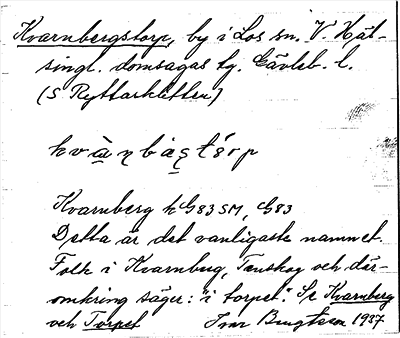 Kvarnbergstorp, by i Los sn. V. Häl-
singl. domsagas tg. Gävleb. l.
(S Ryttarkletten)
kvàṇbàstórp
Kvarnberg k G83SM, G83
Detta är det vanligaste namnet.
Folk i Kvarnberg, Tenskog och där-
omkring säger: "i torpet". Se Kvarnberg
och Torpet Ivar Bengtsson 1937